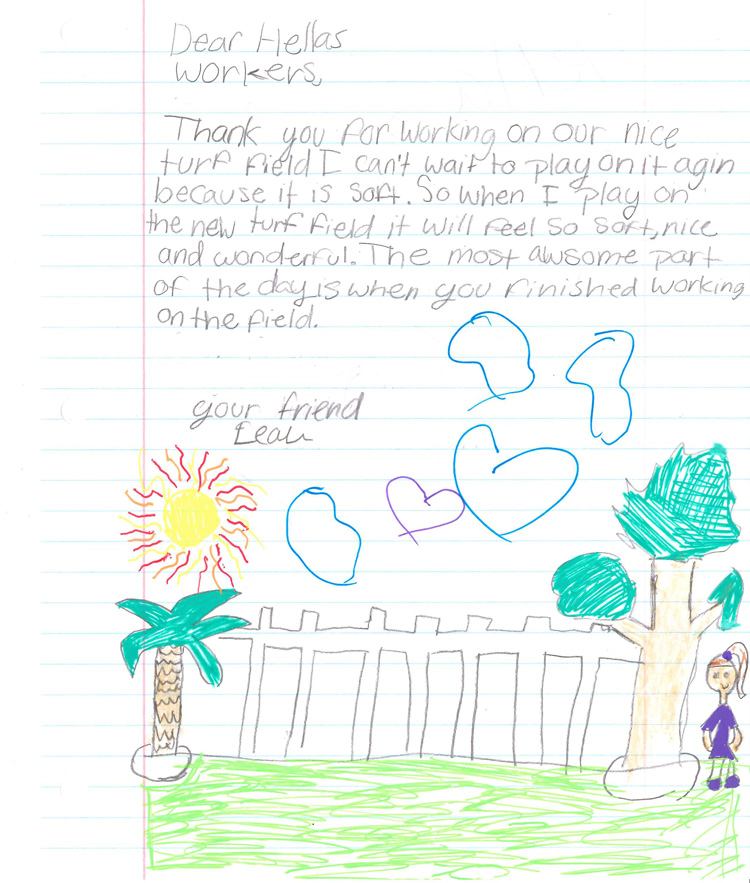 Dear Hellas
workers,
Thank you for working on our nice
turf field I can't wait to play on it agin
because it is soft. So when I play on
the new turf field it will feel so soft, nice
and wonderful. The most awsome part
of the day is when you finished working
on the field.
your friend
Leah